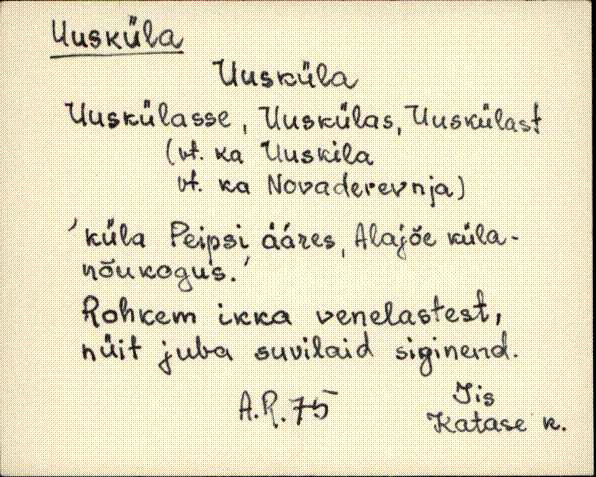 Uusküla
Uusküla
Uuskülasse, Uuskülas, Uuskülast
(vt. ka Uuskila
vt. ka Novaderevnja)
'küla Peipsi ääres, Alajõe küla-
nõukogus.'
Rohkem ikka venelastest,
nüit juba suvilaid siginend.
A.R. 75
Iis
Katase k.